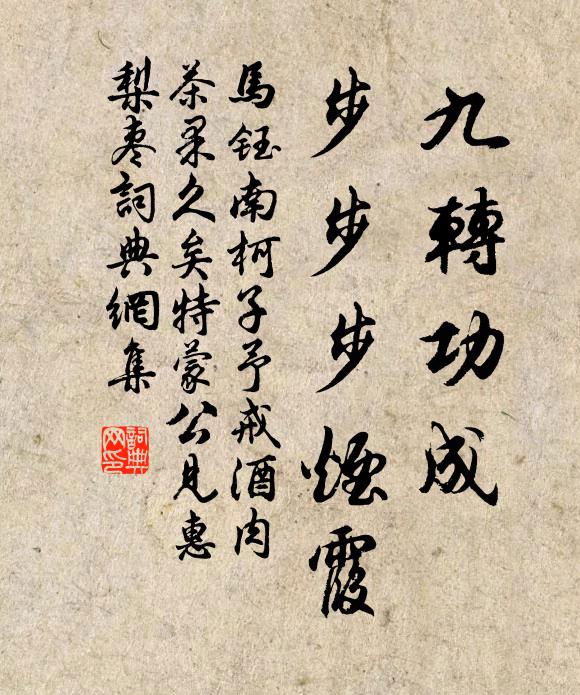 九轉功成
步步步煙霞
馬鈺南柯子予戒酒肉
茶果久矣特蒙公見惠
梨棗詞典網集
詞典
网印